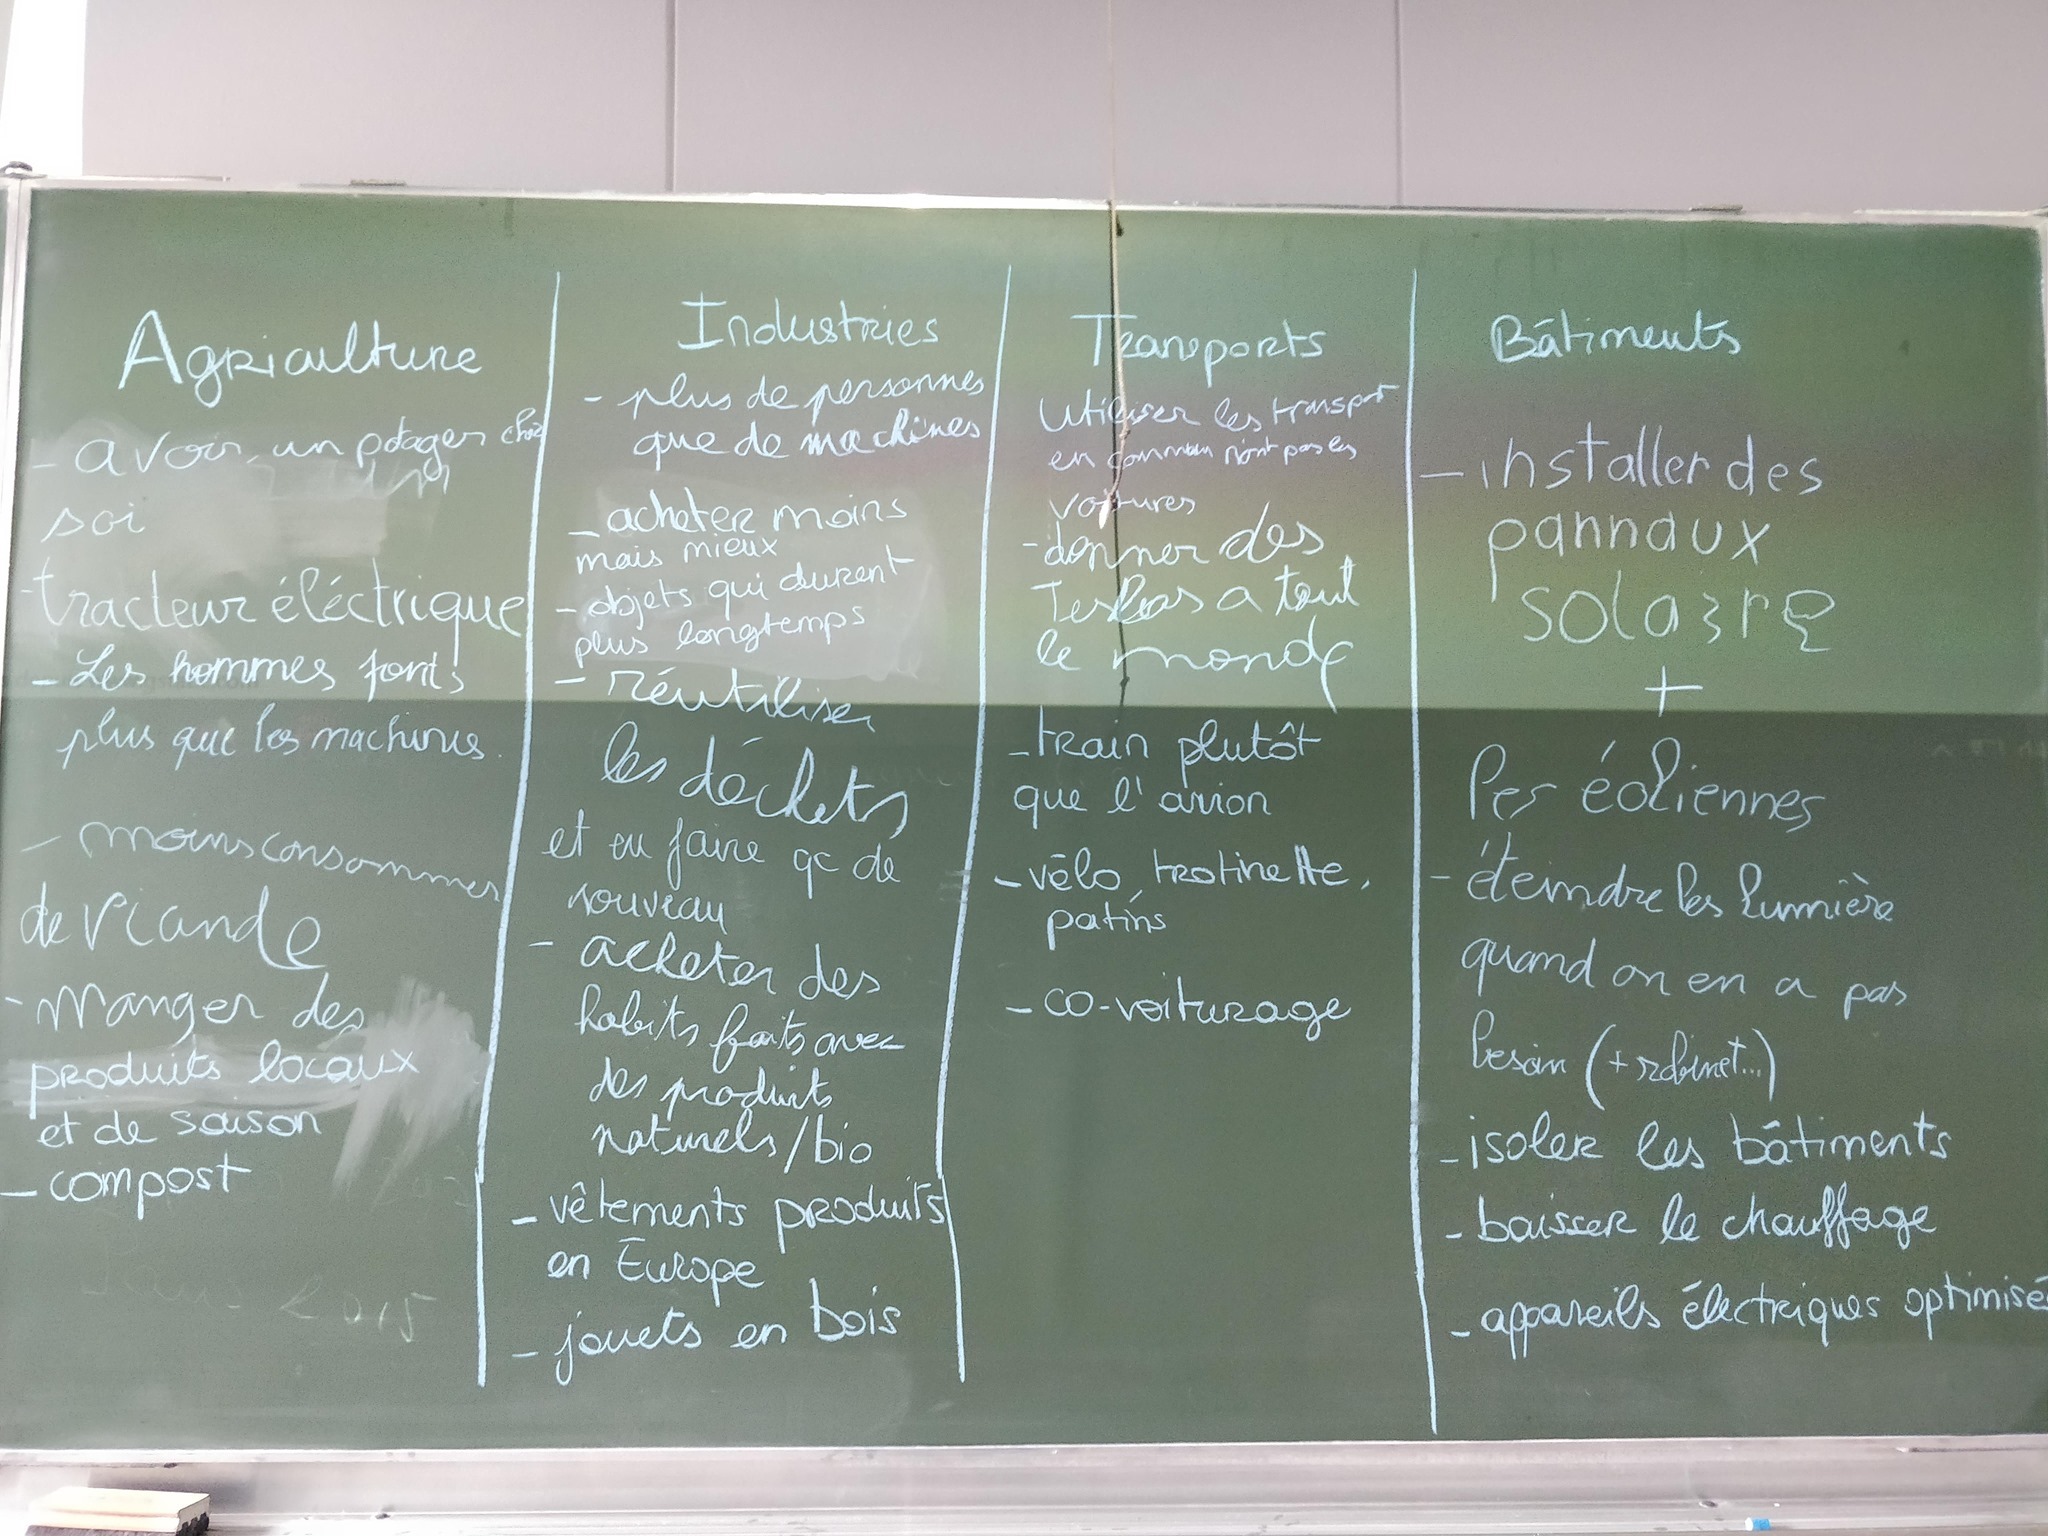 Agriculture
- avoir un potager chez
soi
- tracteur éléctrique
- Les hommes font
plus que les machines.
- moins consommer
de viande
- Manger des
produits locaux
et de saison
- compost
Industries
- plus de personnes
que de machines
- acheter moins
mais mieux
- objets qui durent
plus longtemps
- réutiliser
les déchets
et en faire qc de
nouveau
- acheter des
habits faits avec
des produits
naturels/bio
- vêtements produits
en Europe
- jouets en bois
Transports
Utiliser les transport
en commun pas les
voitures
- donner des
Teslas a tout
le monde
- train plutôt
que l'avion
- vélo, trotinette,
patins
- co-voiturage
Bâtiments
- installer des
pannaux
solaire
+
des éoliennes
- éteindre les lumière
quand on en a pas
besoin (+ robinet...)
- isoler les bâtiments
- baisser le chauffage
- appareils électriques optimisé